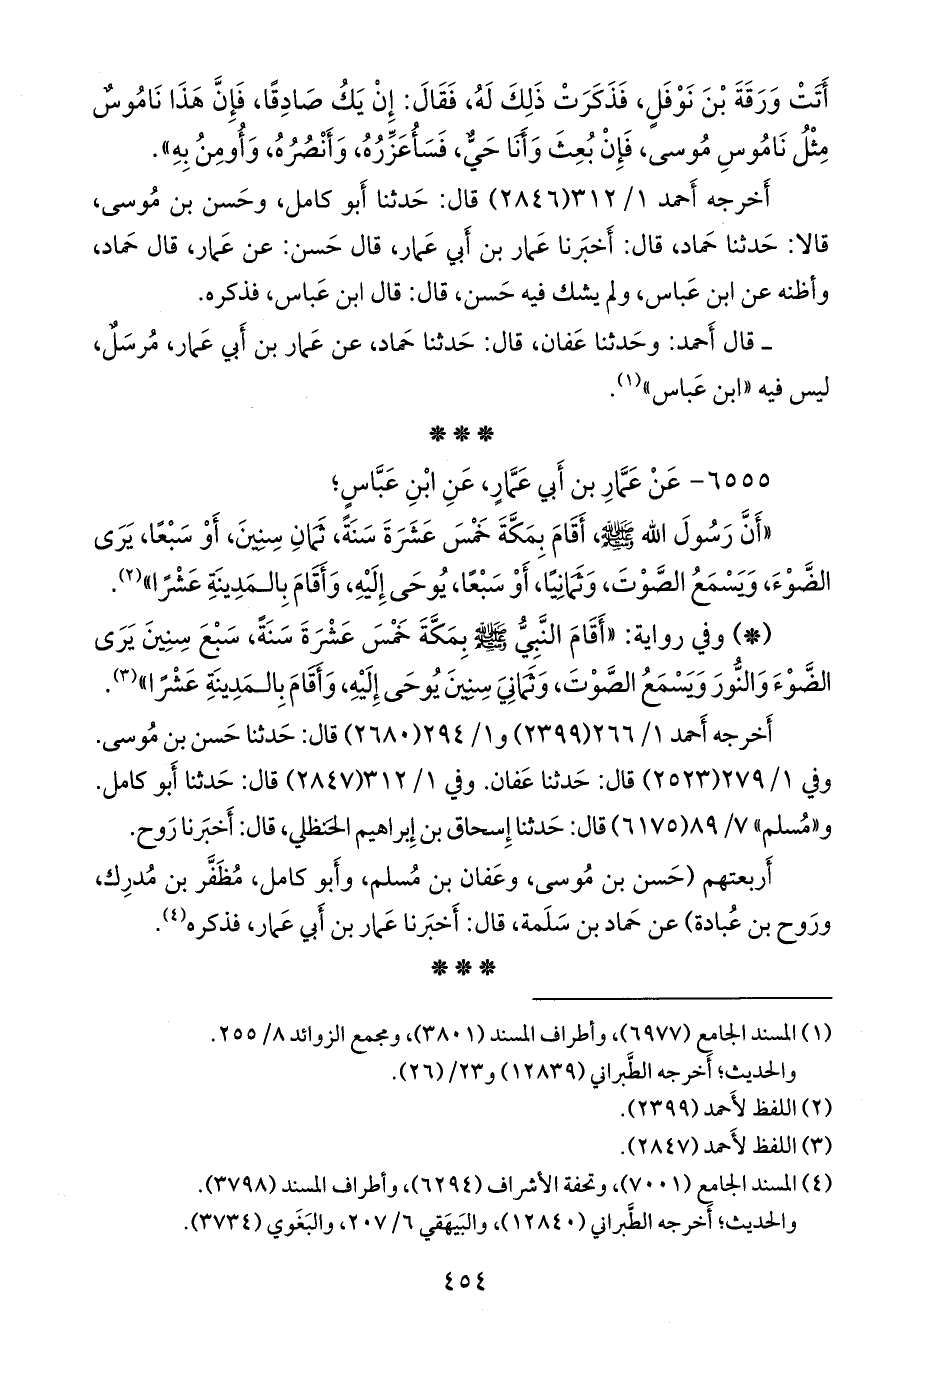 أَتَتْ وَرَقَةَ بْنَ نَوْفَلٍ، فَذَكَرَتْ ذَلِكَ لَهُ، فَقَالَ: إِنْ يَكُ صَادِقًا، فَإِنَّ هَذَا نَامُوسٌ
مِثْلُ نَامُوسِ مُوسى، فَإِنْ بُعِثَ وَأَنَا حَيٌّ، فَسَأُعَزِّرُهُ، وَأَنْصُرُهُ، وَأُومِنُ بِهِ».
أَخرجه أَحمد ١/ ٣١٢(٢٨٤٦) قال: حَدثنا أَبو كامل، وحَسن بن مُوسى،
قالا: حَدثنا حَماد، قال: أَخبَرنا عَمار بن أَبي عَمار، قال حَسن: عن عَمار، قال حَماد،
وأظنه عن ابن عَباس، ولم يشك فيه حَسن، قال: قال ابن عَباس، فذكره.
ـ قال أَحمد: وحَدثنا عَفان، قال: حَدثنا حَماد، عن عَمار بن أَبي عَمار، مُرسَلٌ،
ليس فيه «ابن عَباس»(١).
* * *
٦٥٥٥- عَنْ عَمَّارِ بن أَبي عَمَّارٍ، عَنِ ابْنِ عَبَّاسٍ؛
«أَنَّ رَسُولَ الله ﷺ، أَقَامَ بِمَكَّةَ خَمْسَ عَشَرَةَ سَنَةً، ثَمَانِ سِنِينَ، أَوْ سَبْعًا، يَرَى
الضَّوْءَ، وَيَسْمَعُ الصَّوْتَ، وَثَمَانِيًا، أَوْ سَبْعًا، يُوحَى إِلَيْهِ، وَأَقَامَ بِالـمَدِينَةِ عَشْرًا»(٢).
(*) وفي رواية: «أَقَامَ النَّبِيُّ ﷺ بِمَكَّةَ خَمْسَ عَشْرَةَ سَنَةً، سَبْعَ سِنِينَ يَرَى
الضَّوْءَ وَالنُّورَ وَيَسْمَعُ الصَّوْتَ، وَثَمَانِيَ سِنِينَ يُوحَى إِلَيْهِ، وَأَقَامَ بِالـمَدِينَةِ عَشْرًا»(٣).
أَخرجه أَحمد ١/ ٢٦٦(٢٣٩٩) و١/ ٢٩٤(٢٦٨٠) قال: حَدثنا حَسن بن مُوسى.
وفي ١/ ٢٧٩(٢٥٢٣) قال: حَدثنا عَفان. وفي ١/ ٣١٢(٢٨٤٧) قال: حَدثنا أَبو كامل.
و«مُسلم» ٧/ ٨٩(٦١٧٥) قال: حَدثنا إِسحاق بن إِبراهيم الحَنظلي، قال: أَخبَرنا رَوح.
أَربعتهم (حَسن بن مُوسى، وعَفان بن مُسلم، وأَبو كامل، مُظَفَّر بن مُدرِك،
ورَوح بن عُبادة) عن حَماد بن سَلَمة، قال: أَخبَرنا عَمار بن أَبي عَمار، فذكره(٤).
* * *
(١) المسند الجامع (٦٩٧٧)، وأطراف المسند (٣٨٠١)، ومجمع الزوائد ٨/ ٢٥٥.
والحديث؛ أَخرجه الطَّبراني (١٢٨٣٩) و٢٣/ (٢٦).
(٢) اللفظ لأَحمد (٢٣٩٩).
(٣) اللفظ لأَحمد (٢٨٤٧).
(٤) المسند الجامع (٧٠٠١)، وتحفة الأشراف (٦٢٩٤)، وأطراف المسند (٣٧٩٨).
والحديث؛ أَخرجه الطَّبراني (١٢٨٤٠)، والبَيهَقي ٦/ ٢٠٧، والبَغَوي (٣٧٣٤).
٤٥٤